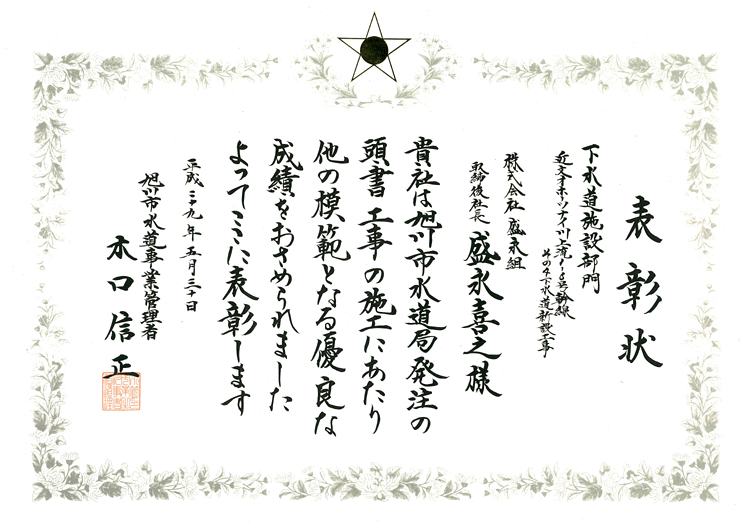 表彰状
下水道施設部門
近文オホツナイ川上流1-8号幹線
その4下水道新設工事
株式会社 盛永組
取締役社長 盛永喜之様
貴社は旭川市水道局発注の
頭書工事の施工にあたり
他の模範となる優良な
成績をおさめられました
よってここに表彰します
平成二十九年五月三十日
旭川市水道事業管理者
木口信正